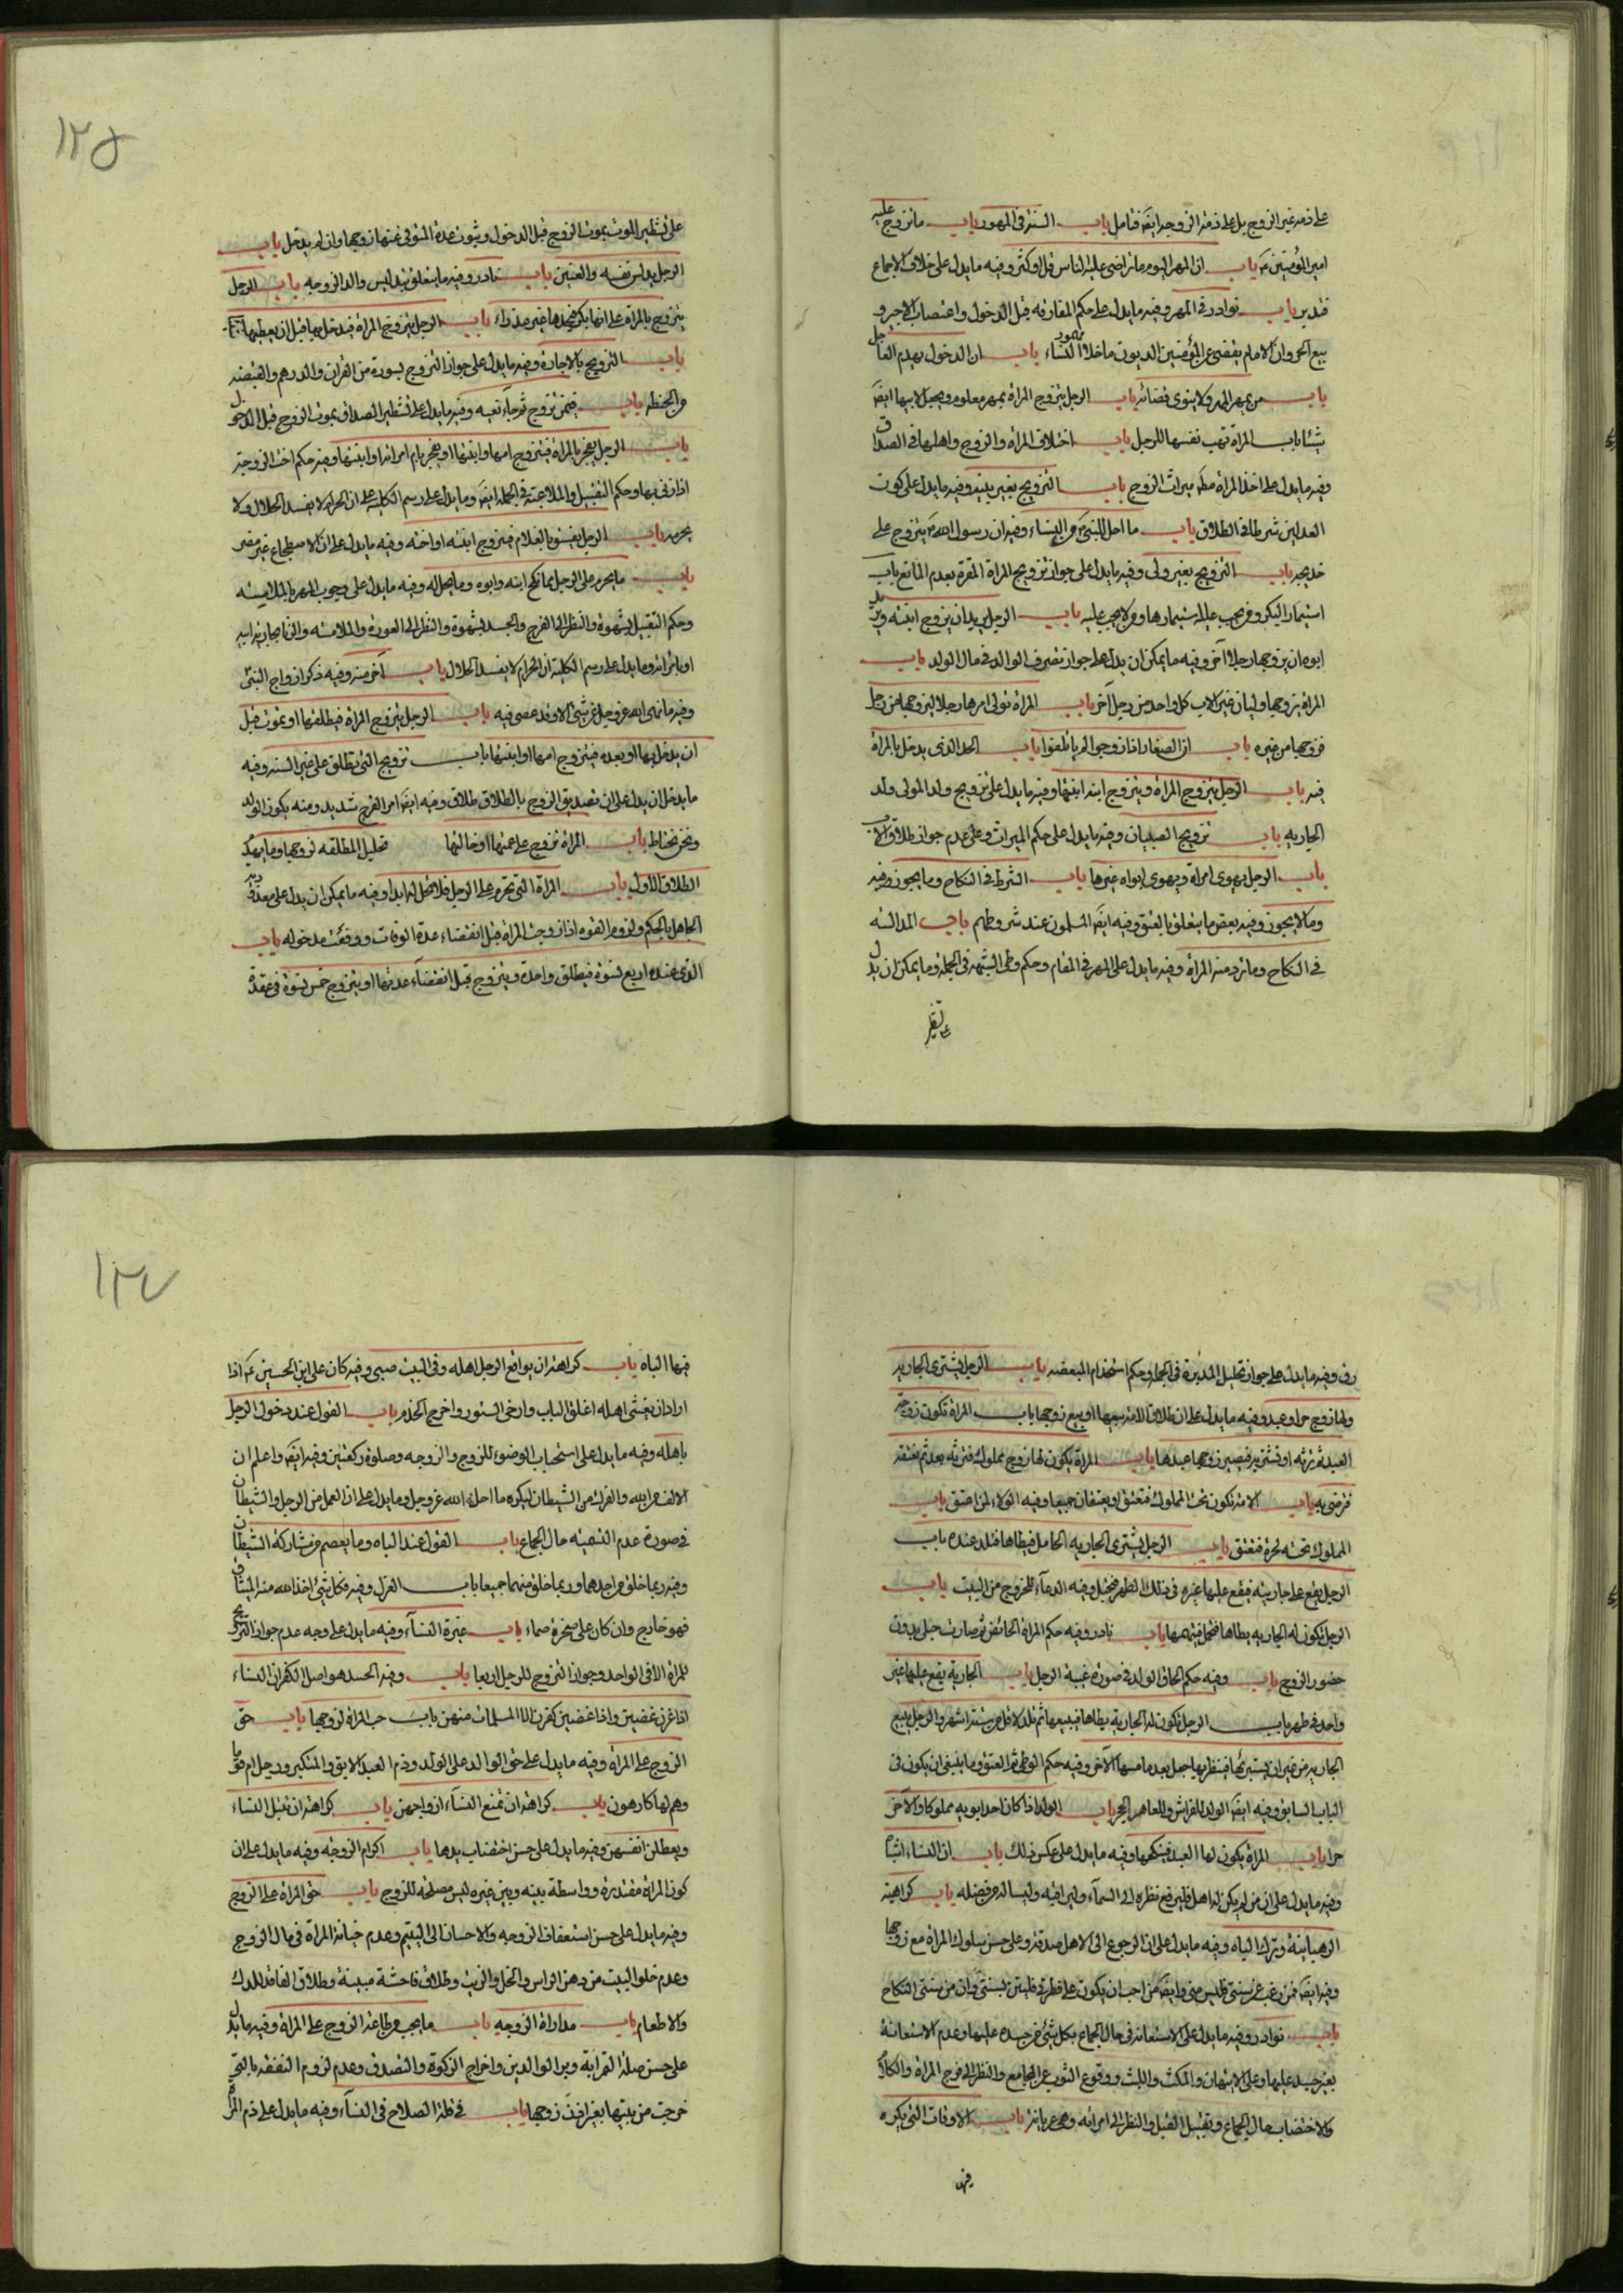 على ذمة غير الزوج بل على ذمة الزوجة ايضَ فتامل باب السنة في المهور باب ما تزوج عليه
امير المؤمنين عَ باب ان المهر اليوم ما تراضى عليه الناس قل او كثر وفيه ما يدل على خلاف الاجماع
فتدبر باب نوادر في المهر وفيه ما يدل على حكم المفارقة قبل الدخول واغتصاب الاجير و
بيع الحر وان الامام يقضي عن المؤمنين الديون ما خلا مهور النساء باب ان الدخول يهدم العاجل
باب من يمهر المهر ولا ينوي قضائه باب الرجل يتزوج المراة بمهر معلوم ويجعل لابيها ايضَ
شيئا باب المراة تهب نفسها للرجل باب اختلاف المراة والزوج واهلها في الصداق
وفيه ما يدل على اخذ المراة ميراث الزوج باب التزويج بغير بينة وفيه ما يدل على كون
العدلين شرطا في الطلاق باب ما احل للنبي من النساء وفيه ان رسول الله لم يتزوج على
خديجة باب التزويج بغير ولي وفيه ما يدل على جواز تزويج المراة المقرة بعدم المانع باب
استيمار البكر ومن يجب عليه استيمارها ومن لا يجب عليه باب الرجل يريد ان يزوج ابنته ويريد
ابوه ان يزوجها رجلا آخر وفيه ما يمكن ان يدل على جواز تصرف الوالد في مال الولد باب
المراة يزوجها وليان غير الاب كل واحد من رجل آخر باب المراة تولي امرها رجلا ليزوجها من رجل
فزوجها من غيره باب ان الصغار اذا زوجوا لم ياتلفوا باب الحد الذي يدخل بالمراة
فيه باب الرجل يتزوج المراة ويتزوج ابنه ابنتها وفيه ما يدل على تزويج ولد المولى ولد
الجارية باب تزويج الصبيان وفيه ما يدل على حكم الميراث وعلى عدم جواز طلاق الاب
باب الرجل يهوى امراة ويهوى ابواه غيرها باب الشرط في النكاح وما يجوز منه
وما لا يجوز وفيه بعض ما يتعلق بالعتق وفيه ايضَ المسلمون عند شروطهم باب المدالسة
في النكاح وما ترد منه المراة وفيه ما يدل على المهر في المقام وحكم وطي الشبهة في الجملة وما يمكن ان يدل
على تشطير
١٢٥
على تشطير الموت بموت الزوج قبل الدخول وثبوت عدة المتوفى عنها زوجها وان لم يدخل باب
الرجل يدلس نفسه والعنين باب نادر وفيه ما يتعلق بتدليس والد الزوجة باب الرجل
يتزوج بالمراة على انها بكر فيجدها غير عذراء باب الرجل يتزوج المراة فيدخل بها قبل ان يعطيها
باب التزويج بالاجارة وفيه ما يدل على جواز التزويج بسورة من القران والدرهم والقبضة
من الحنطة باب فيمن تزوج ثم جاء نعيه وفيه ما يدل على تشطير الصداق بموت الزوج قبل الدخول
باب الرجل يفجر بالمراة فيتزوج امها او ابنتها او يفجر بام امراته او ابنتها وفيه حكم اخت الزوجة
اذا زنى بها وحكم التقبيل والملاعبة في الجملة ايضَ وما يدل على رسم الكلية على ان الحرام لا يفسد الحلال ولا
يحرمه باب الرجل يفسق بالغلام فيتزوج ابنته او اخته وفيه ما يدل على ان الاضطجاع غير مضر
باب ما يحرم على الرجل مما نكح ابنه وابوه وما يحل له وفيه ما يدل على وجوب المهر بالملامسة
وحكم التقبيل بشهوة والنظر الى الفرج والجسد بشهوة والنظر الى العورة والملامسة والزنا بجارية ابيه
او بامراته وما يدل على رسم الكلية ان الحرام لا يفسد الحلال باب آخر منه وفيه ذكر ازواج النبي
وفيه ما نهى الله عز وجل عن شيء الا وقد عصي فيه باب الرجل يتزوج المراة فيطلقها او تموت قبل
ان يدخل بها او بعده فيتزوج امها او ابنتها باب تزويج التي تطلق على غير السنة وفيه
ما يدخل ان يدل على ان تصديق الزوج بالطلاق طلاق وفيه ايضَ امر الفرج شديد ومنه يكون الولد
ونحن نحتاط باب المراة تزوج على عمتها او خالتها تحليل المطلقة لزوجها وما يهدم
الطلاق الاول باب المراة التي تحرم على الرجل فلا تحل له ابدا وفيه ما يمكن ان يدل على معذورية
الجاهل بالحكم ولزوم القوه اذا زوجت المراة قبل انقضاء عدة الوفات ووقعت مدخوله باب
الذي عنده اربع نسوة فيطلق واحدة ويتزوج قبل انقضاء عدتها او يتزوج خمس نسوة في عقدة
رق وفيه ما يدل على جواز تحليل المدبرة في الجملة وحكم استخدام المبعضة باب الرجل يشتري الجارية
ولها زوج حر او عبد وفيه ما يدل على ان طلاق الامة بيعها او بيع زوجها باب المراة تكون زوجة
العبد ثم ترثه او تشتريه فيصير زوجها عبدها باب المراة يكون لها زوج مملوك فترثه بعد ثم تعتقه
فترضى به باب الامة تكون تحت المملوك فتعتق او يعتقان جميعا وفيه الولاء لمن اعتق باب
المملوك تحته الحرة فيعتق باب الرجل يشتري الجارية الحامل فيطاها فتلد عنده باب
الرجل يقع على جاريته فيقع عليها غيره في ذلك الطهر فتحبل وفيه الدعاء للخروج من البيت باب
الرجل تكون له الجارية يطاها فتحبل فيتهمها باب نادر وفيه حكم المراة الحائض ثم صارت حبلى بدون
حضور الزوج باب وفيه حكم الحاق الولد في صورة غيبة الرجل باب الجارية يقع عليها غير
واحد في طهر باب الرجل تكون له الجارية يطاها فيبيعها ثم تلد لاقل من ستة اشهر والرجل يبيع
الجارية من غير ان يستبرئها فيظهر بها حبل بعد ما مسها الآخر وفيه حكم الوطي ثم العتق وما ينبغي ان يكون في
الباب السابق وفيه ايضَ الولد للفراش وللعاهر الحجر باب الولد اذا كان احد ابويه مملوكا والآخر
حرا باب المراة يكون لها العبد فينكحها وفيه ما يدل على عكس ذلك باب ان النساء اشباه
وفيه ما يدل على ان من لم يكن له اهل فليرفع نظره الى السماء وليراقبه وليساله من فضله باب كراهية
الرهبانية وترك الباه وفيه ما يدل على ان الرجوع الى الاهل صدقة وعلى حسن سلوك المراة مع زوجها
وفيه ايضَ فمن رغب عن سنتي فليس مني وايضَ من احب ان يكون على فطرتي فليستن بسنتي وان من سنتي النكاح
باب نوادر وفيه ما يدل على الاستعانة في حال الجماع بكل شيء من جسده عليها وعدم الاستعانة
بغير جسده عليها وعلى الاتيان والمكث واللبث ووقوع الثوب عن المجامع والنظر الى فرج المراة والكلام
والاختضاب حال الجماع وتقبيل القبل والنظر الى امراته وهي عريانة باب الاوقات التي يكره
فيها
١٢٧
فيها الباه باب كراهة ان يواقع الرجل اهله وفي البيت صبي وفيه كان علي ابن الحسين عَ اذا
اراد ان يغشى اهله اغلق الباب وارخى الستور واخرج الخدم باب القول عند دخول الرجل
باهله وفيه ما يدل على استحباب الوضوء للزوج والزوجة وصلوة ركعتين وفيه ايضَ واعلم ان
الالف من الله والفرك من الشيطان ليكره ما احل الله عز وجل وما يدل على ان العمل من الرجل والشيطان
في صورة عدم التسمية حال الجماع باب القول عند الباه وما يعصم من مشاركة الشيطان
وفيه ربما خلق من احدهما وربما خلق منهما جميعا باب العزل وفيه فكل شيء اخذ الله منه الميثاق
فهو خارج وان كان على صخرة صماء باب غيرة النساء وفيه ما يدل على وجه عدم جواز التزويج
للمراة الا في الواحد وجواز التزوج للرجل اربعا باب وفيه الحسد هو اصل الكفر ان النساء
اذا غرن غضبن واذا غضبن كفرن الا المسلمات منهن باب حب المراة لزوجها باب حق
الزوج على المراة وفيه ما يدل على حق الوالد على الولد وذم العبد الآبق والمتكبر ورجل ام قوما
وهم لها كارهون باب كراهة ان تمنع النساء ازواجهن باب كراهة ان تتبتل النساء
ويعطلن انفسهن وفيه ما يدل على حسن اختضاب يدها باب اكرام الزوجة وفيه ما يدل على ان
كون المراة مقتدرة وواسطة بينه وبين غيره ليس مصلحة للزوج باب حق المراة على الزوج
وفيه ما يدل على حسن استعفاف الزوجة والاحسان الى اليتيم وعدم خيانة المراة في مال الزوج
وعدم خلو البيت من دهن الراس والخل والزيت وطلاق فاحشة مبينة وطلاق الفاقد للمدرك
والاطعام باب مداراة الزوجة باب ما يجب من طاعة الزوج على المراة وفيه ما يدل
على حسن صلة القرابة وبر الوالدين واخراج الزكوة والتصدق وعدم لزوم النفقة بالتي
خرجت من بيتها بغير اذن زوجها باب في قلة الصلاح في النساء وفيه ما يدل على ذم المراة